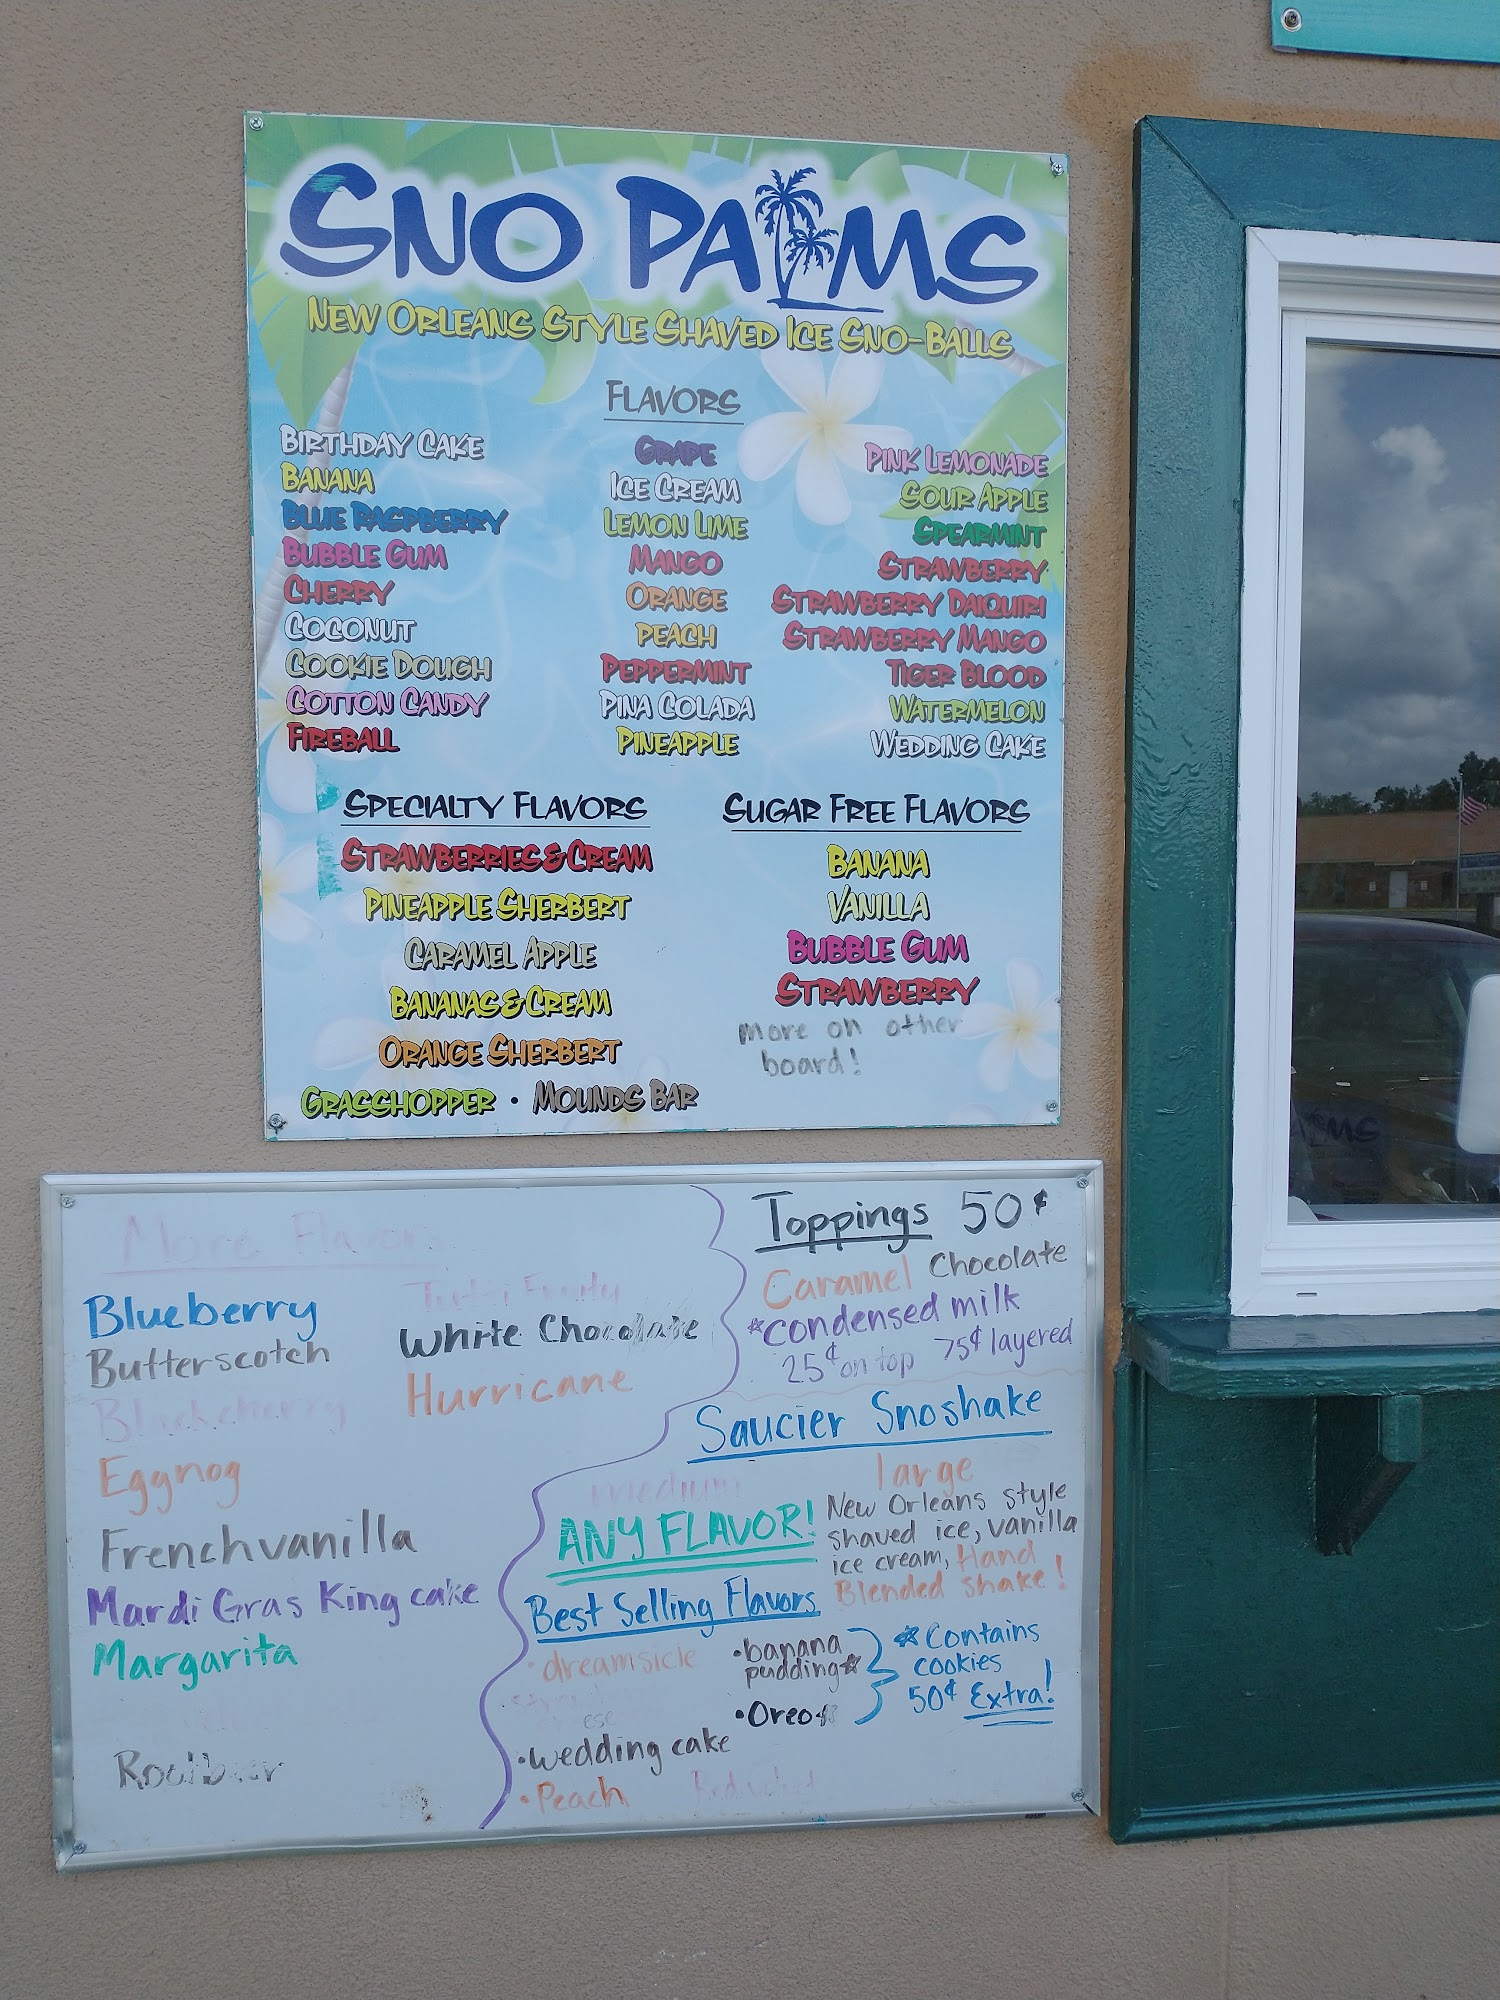 SNO PALMS
NEW ORLEANS STYLE SHAVED ICE SNO-BALLS
FLAVORS
BIRTHDAY CAKE
BANANA
BLUE RASPBERRY
BUBBLE GUM
CHERRY
COCONUT
COOKIE DOUGH
COTTON CANDY
FIREBALL
GRAPE
ICE CREAM
LEMON LIME
MANGO
ORANGE
PEACH
PEPPERMINT
PINA COLADA
PINEAPPLE
PINK LEMONADE
SOUR APPLE
SPEARMINT
STRAWBERRY
STRAWBERRY DAIQUIRI
STRAWBERRY MANGO
TIGER BLOOD
WATERMELON
WEDDING CAKE
SPECIALTY FLAVORS
STRAWBERRIES & CREAM
PINEAPPLE SHERBERT
CARAMEL APPLE
BANANAS & CREAM
ORANGE SHERBERT
GRASSHOPPER • MOUNDS BAR
SUGAR FREE FLAVORS
BANANA
VANILLA
BUBBLE GUM
STRAWBERRY
more on other
board!
More Flavors
Blueberry
Butterscotch
Blackcherry
Eggnog
Frenchvanilla
Mardi Gras King cake
Margarita
Rootbeer
Tutti Fruity
White Chocolate
Hurricane
Toppings 50¢
Caramel Chocolate
*condensed milk
25¢ on top 75¢ layered
Saucier Snoshake
medium large
ANY FLAVOR!
New Orleans style
shaved ice, vanilla
ice cream, Hand
Blended shake!
Best Selling Flavors
• dreamsicle
• wedding cake
• Peach
• banana
pudding*
• Oreo
Red Velvet
* Contains
cookies
50¢ Extra!